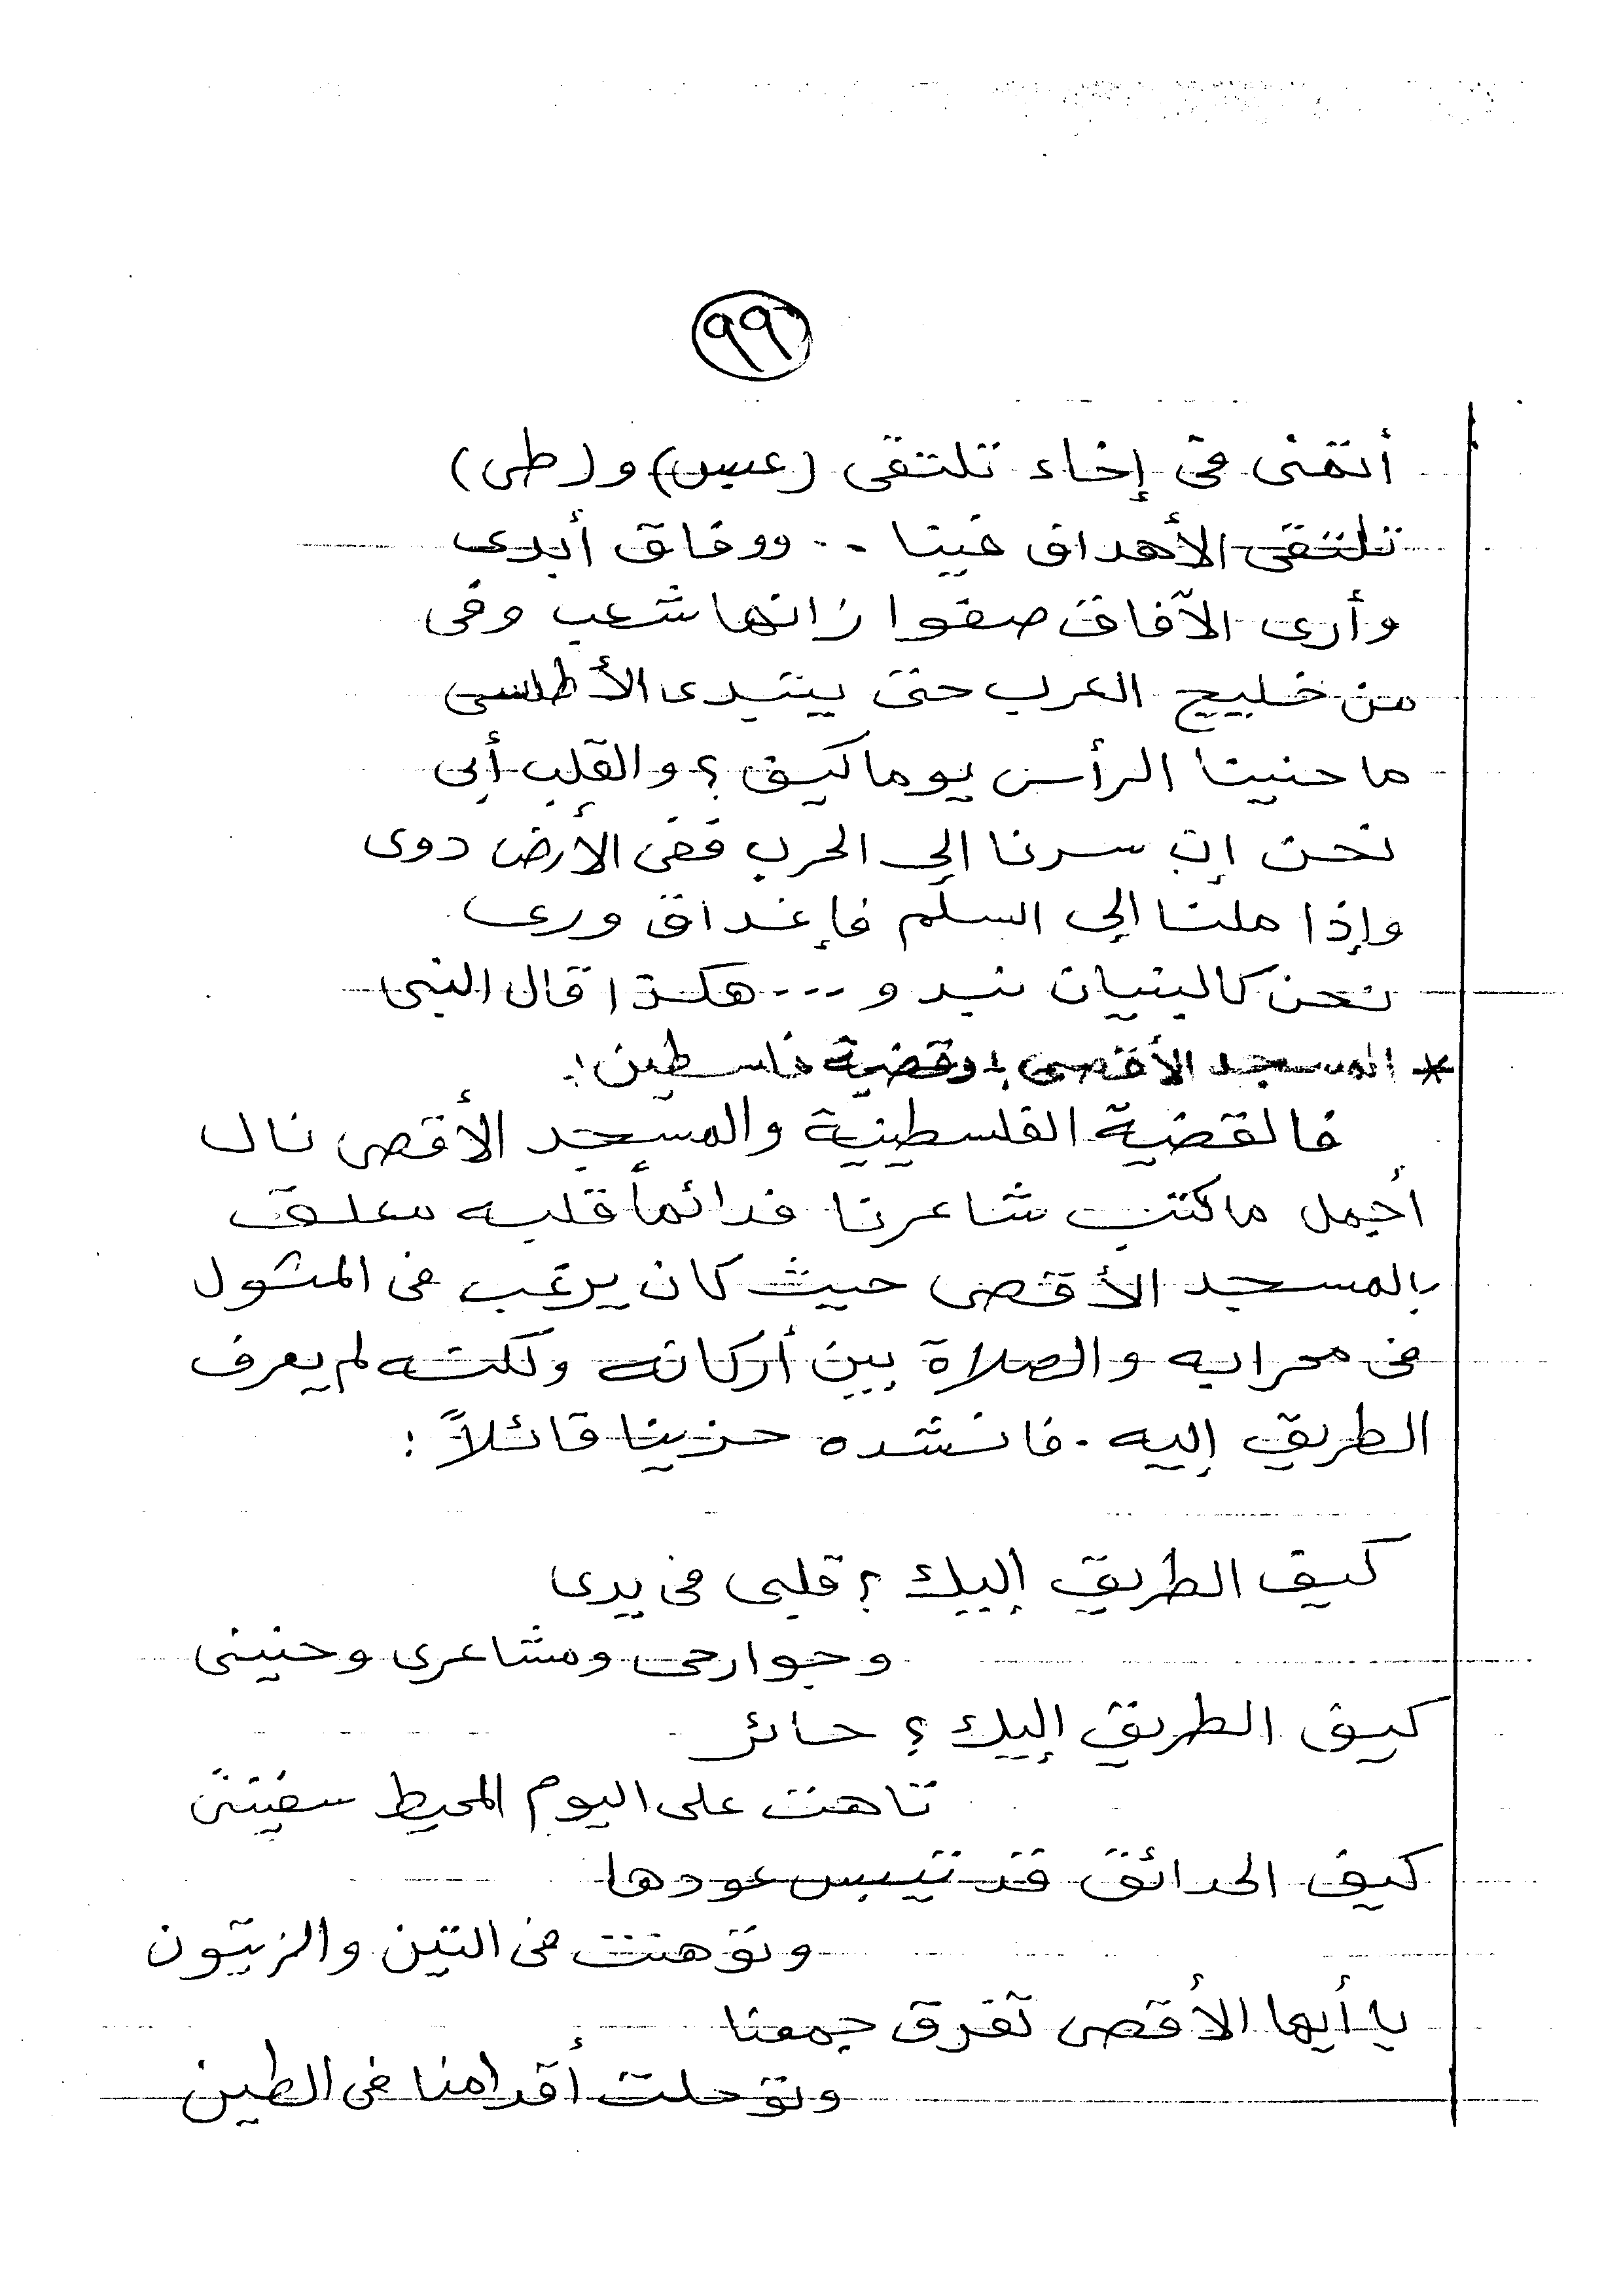 ٩٩
أتمنى فى إخاء تلتقى (عبس) و (طى)
تلتقى الأهداف فينا .. ووفاق أبدى
وأرى الآفاق صفوا زانها شعب وفى
من خليج العرب حتى يبتدى الأطلسى
ما حنينا الرأس يوما كيف ؟ والقلب أبى
نحن إن سرنا إلى الحرب ففى الأرض دوى
وإذا ملنا إلى السلم فإغداق ورى
نحن كالبنيان نبدو ... هكذا قال النبى
* المسجد الأقصى ؛ وقضية فلسطين :
فالقضية الفلسطينية والمسجد الأقصى نال
أجمل ما كتب شاعرنا فدائماً قلبه معلق
بالمسجد الأقصى حيث كان يرغب فى المثول
فى محرابه والصلاة بين أركانه ولكنه لم يعرف
الطريق إليه . فانشده حزينا قائلاً :
كيف الطريق إليك ؟ قلبى فى يدى
وجوارحى ومشاعرى وحنينى
كيف الطريق إليك ؟ حائر
تاهت على اليوم المحيط سفينتى
كيف الحدائق قد تيبس عودها
وتوهنت فى التين والزيتون
يا أيها الأقصى تفرق جمعنا
وتوحلت أقدامنا فى الطين